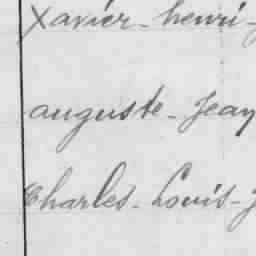 Xavier - henri -
auguste - Jean
Charles - Louis - J